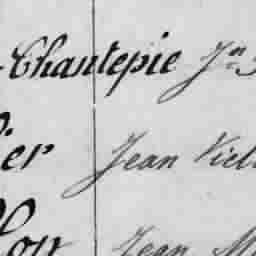 Chantepie Jn
ier Jean Vict
Jean M